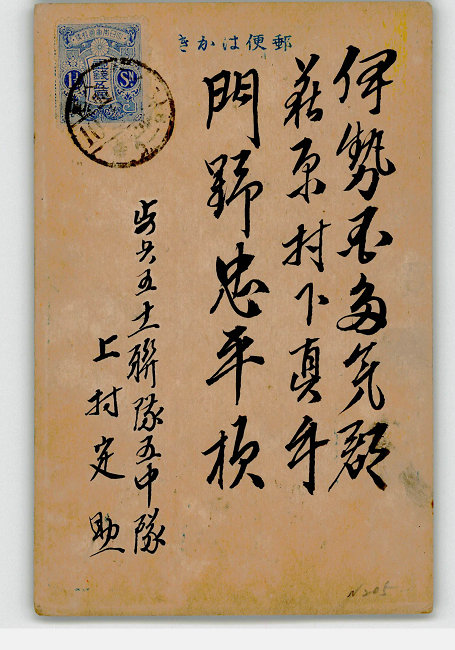 郵便はかき
伊勢国多気郡
萩原村下真手
門野忠平様
歩兵五十一聯隊五中隊
上村定助
N205